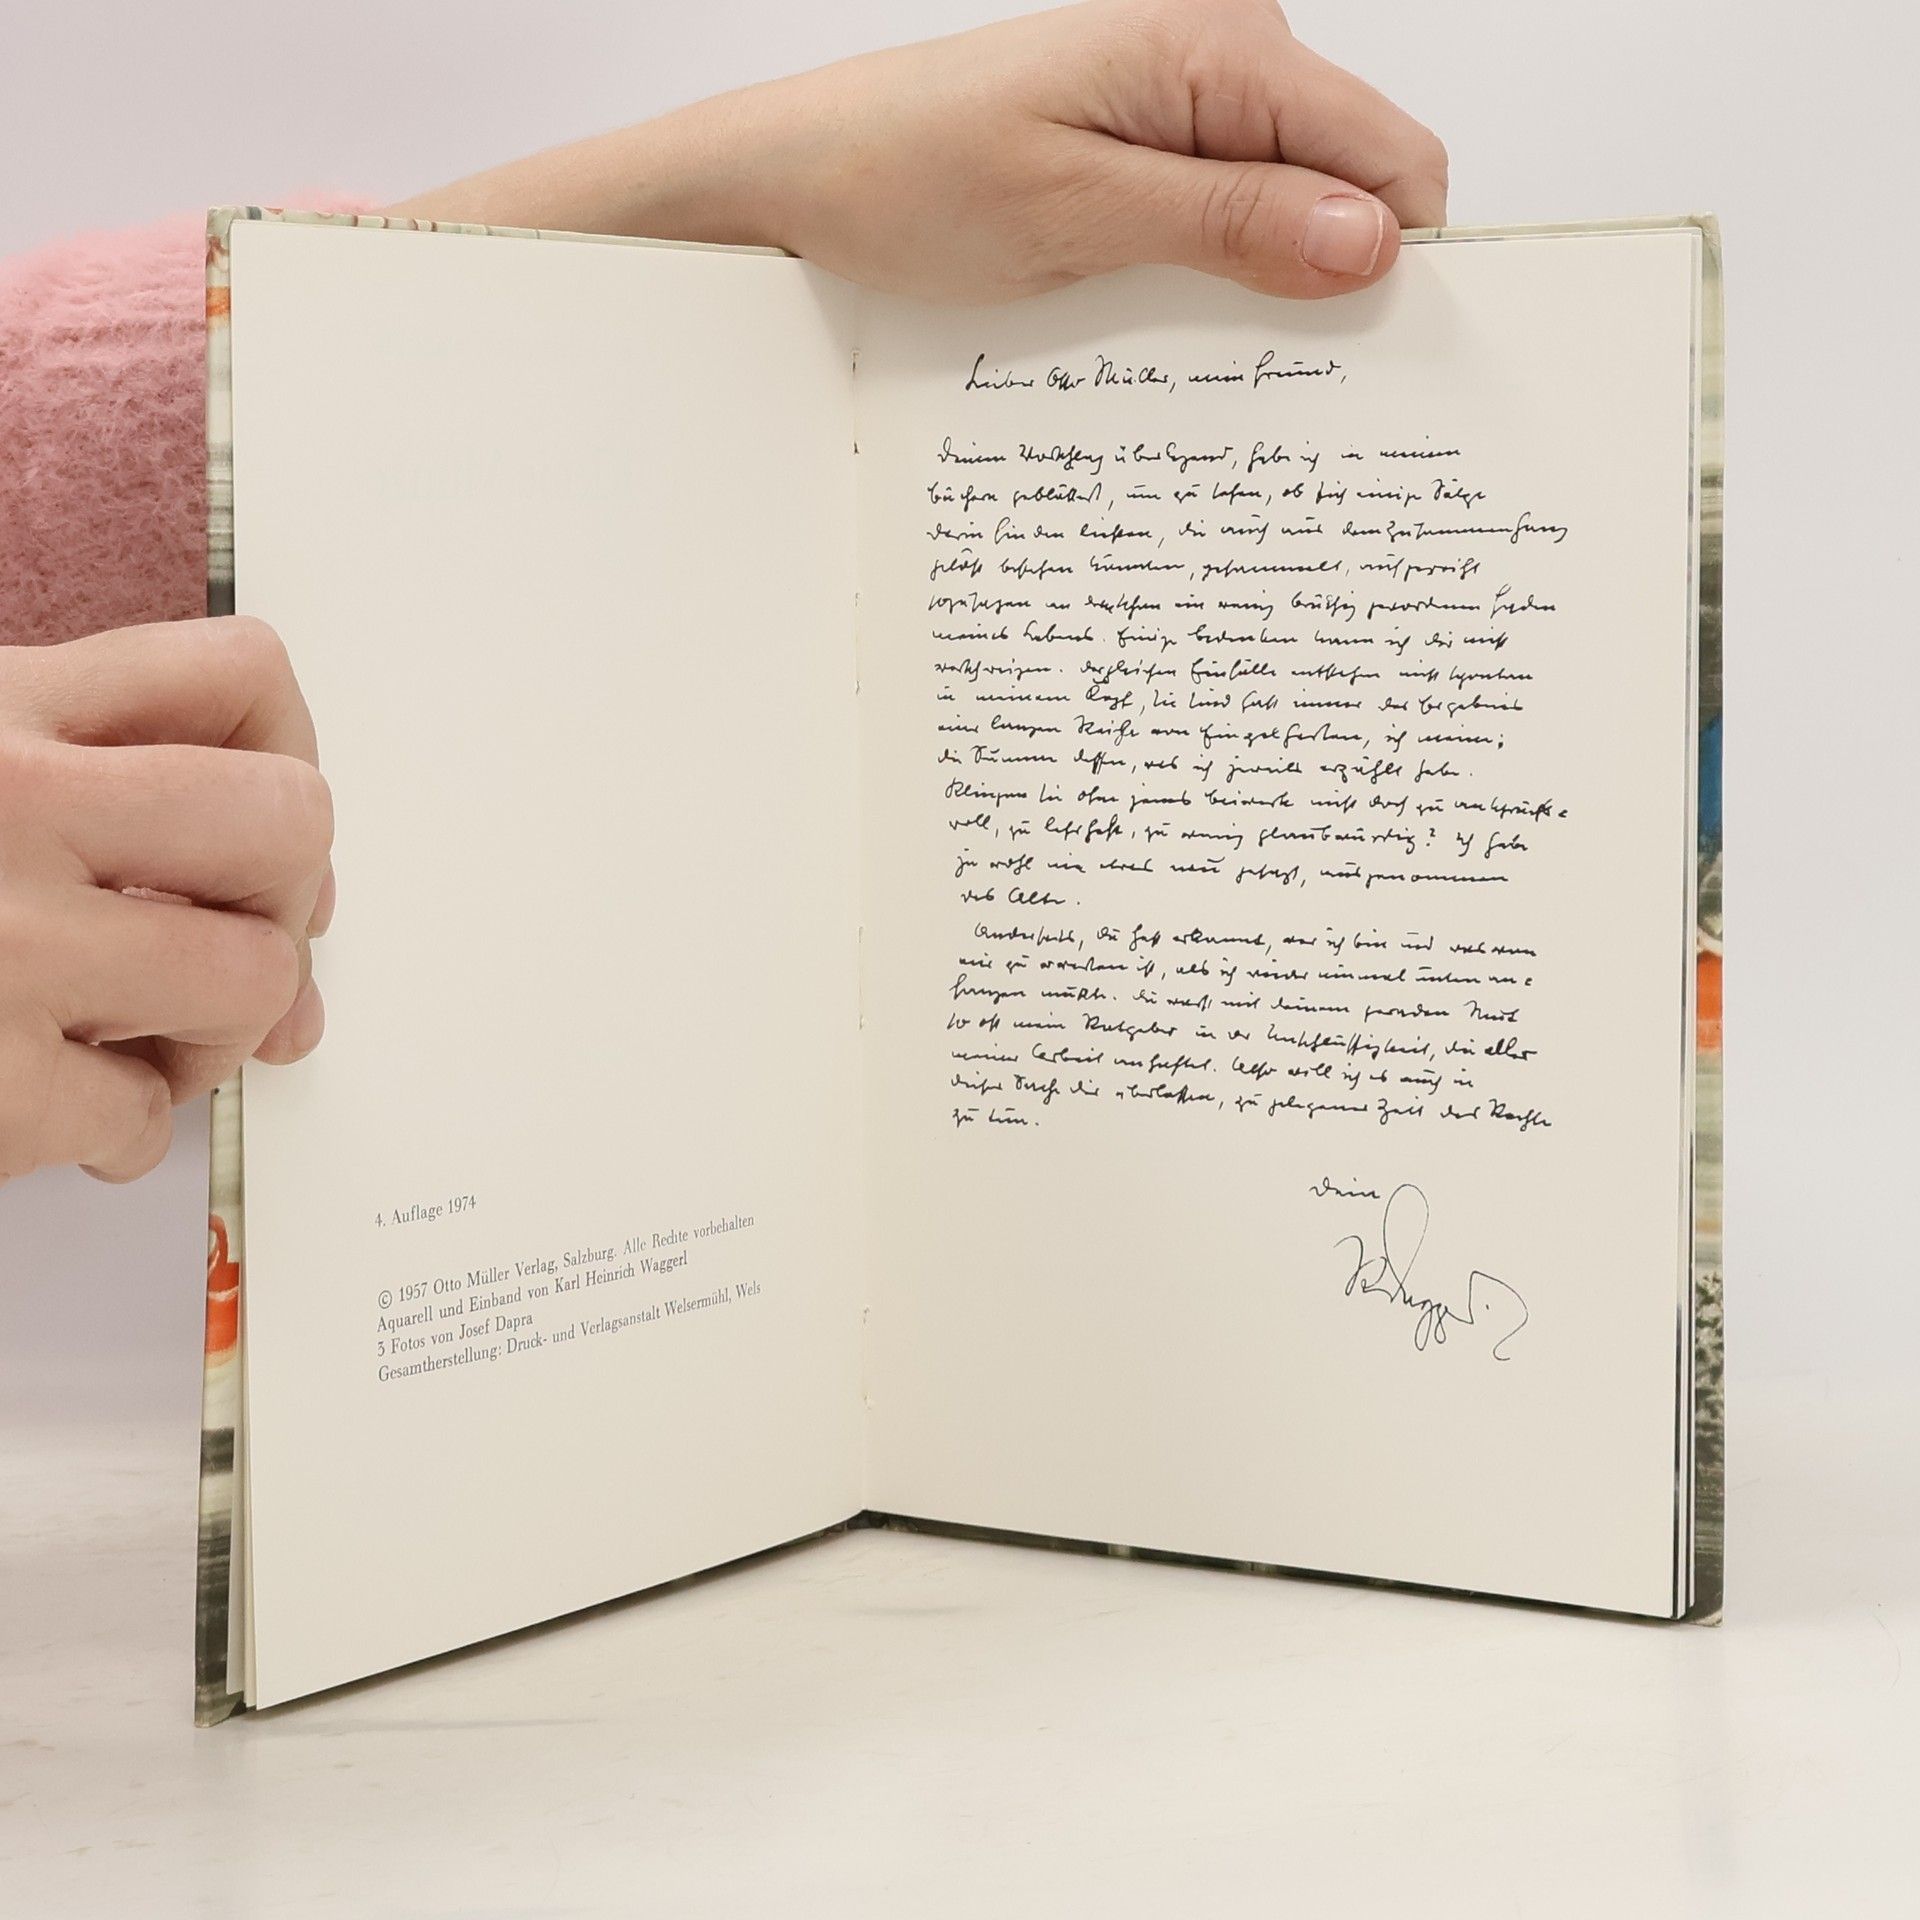 4. Auflage 1974
© 1957 Otto Müller Verlag, Salzburg. Alle Rechte vorbehalten
Aquarell und Einband von Karl Heinrich Waggerl
3 Fotos von Josef Dapra
Gesamtherstellung: Druck- und Verlagsanstalt Welsermühl, Wels
Lieber Otto Müller, mein Freund,
deinen Vorschlag überlegend, habe ich in meinen
Büchern geblättert, um zu sehen, ob sich einige Sätze
darin finden liessen, die auch aus dem Zusammenhang
gelöst bestehen könnten, gesammelt, aufgereiht
sozusagen an den ein wenig brüchig gewordenen Faden
meines Lebens. Einige Bedenken kann ich dir nicht
verschweigen. Dergleichen Einfälle entstehen nicht spontan
in meinem Kopf, sie sind fast immer das Ergebnis
einer langen Reihe von Einzelheiten, ich meine:
die Summe dessen, was ich jeweils erzählt habe.
Klingen sie ohne jenes Beiwerk nicht doch zu anspruchs=
voll, zu lehrhaft, zu wenig glaubwürdig? Ich habe
ja wohl nie etwas neu gesagt, ausgenommen
das Alte.
Anderseits, du hast erkannt, wer ich bin und was von
mir zu erwarten ist, als ich wieder einmal unten an=
fangen musste. Du warst mit deinem geraden Mut
so oft mein Ratgeber in der Unschlüssigkeit, die aller
meiner Arbeit anhaftet. Also will ich es auch in
dieser Sache dir überlassen, zu gelegener Zeit das Rechte
zu tun.
Dein
KHWaggerl